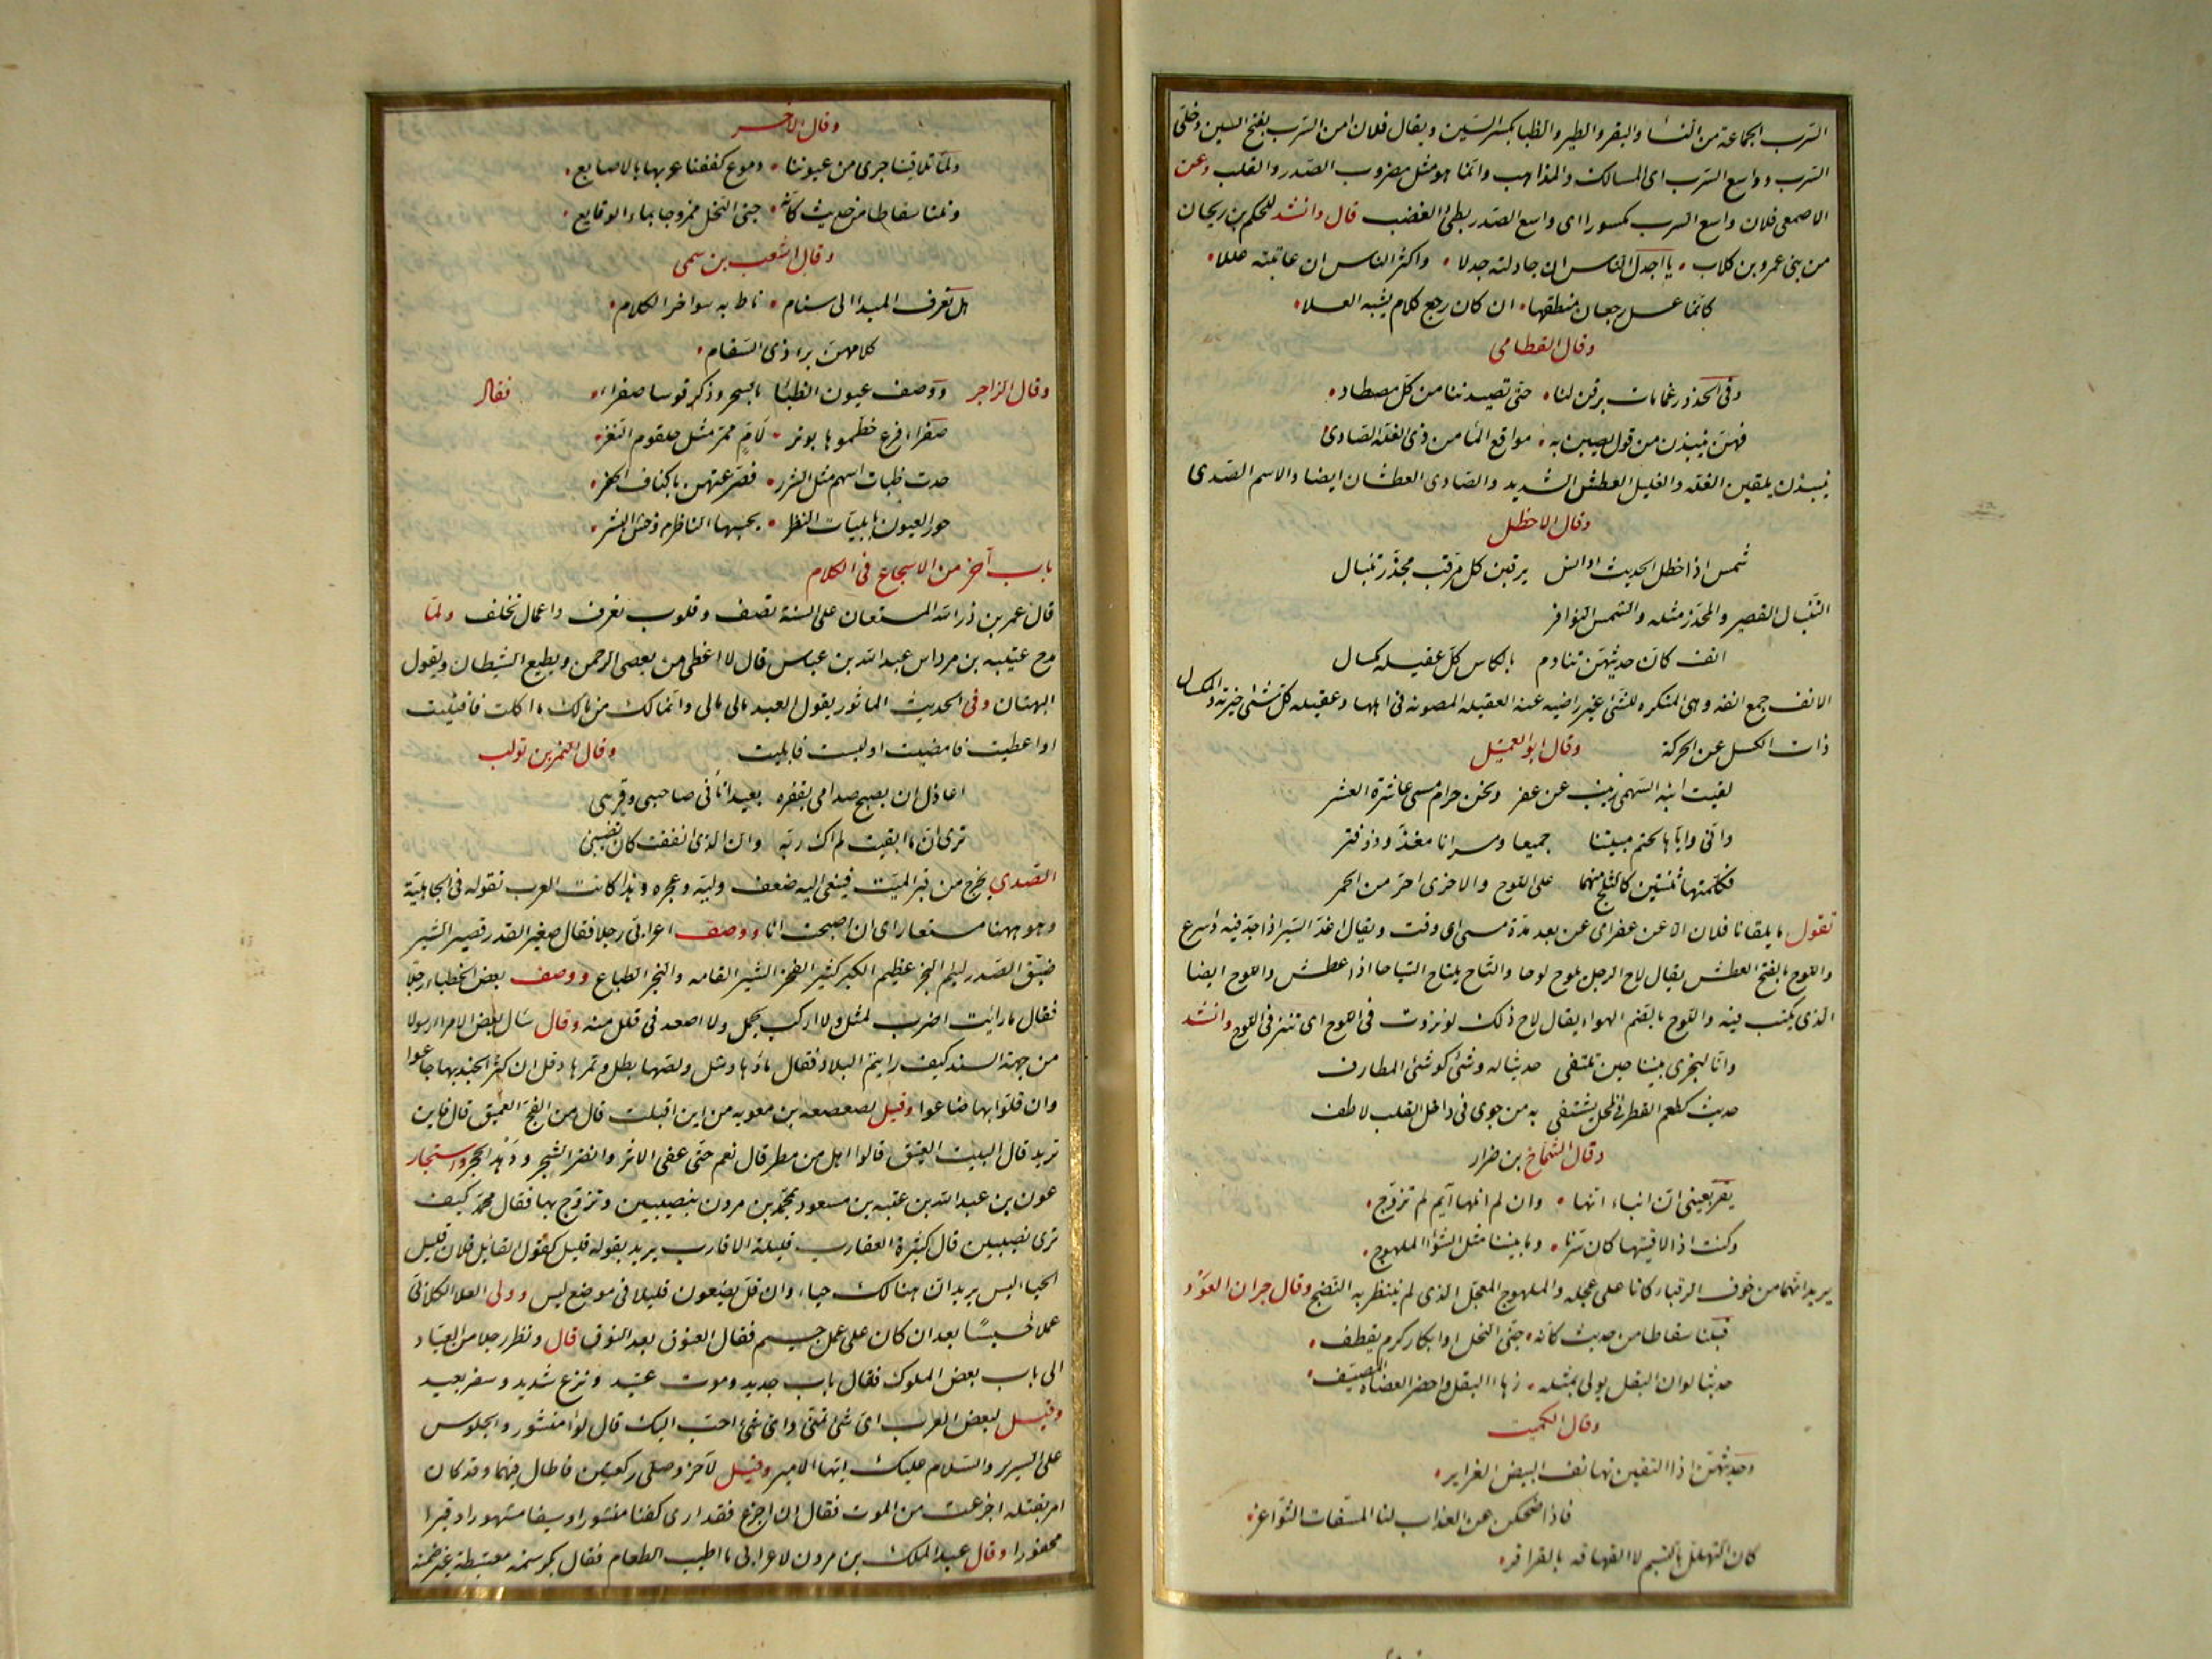 السّرب الجماعة من النسا والبقر والطير والظبا بكسر السّين ويقال فلان امن السّرب بفتح السين وخلىّ
السّرب وواسع السّرب اى المسالك والمذاهب وانّما هو مثل مضروب الصّدر والقلب وعن
الاصمعى فلان واسع السرب مكسورا اى واسع الصّدر بطىء الغضب قال وانشد للحكم بن ريحان
من بنى عمرو بن كلاب • يا اجدل الناس ان جادلته جدلا • واكثر الناس ان عاتبته عللا •
كانّما عسل رجعان منطقها • ان كان رجع كلام يشبه العسلا •
وقال القطامى
وفى الخدور غمامات برقن لنا • حتى تصيدننا من كلّ مصطاد •
فهنّ ينبذن من قول يصبن به • مواقع الما من ذى الغلّة الصّادى
ينبذن يلقين الغلّة والغليل العطش الشديد والصّادى العطشان ايضا والاسم الصّدى
وقال الاخطل
شمس اذا خطل الحديث اوانس يرقبن كل مرقب مجذّر تنبال
التّنبال القصير والمجذّر مثله والشمس النوافر
انف كانّ حديثهنّ تنادم بالكاس كلّ عقيله مكسال
الانف جمع انفه وهى المنكره للشئ غير راضيه عنه العقيله المصونه فى اهلها وعقيله كلّ شئ خيرته والمكسال
ذات الكسل عن الحركة وقال ابو العميثل
لقيت ابنه السّهمى زينب عن عفر ونحن حرام مسى عاشرة العشر
وانّى وايّاها لحتم مبيتنا جميعا ومسرانا مغذّ وذو فتر
فكلّمتها ثنتين كالثلج منهما على اللوح والاخرى احرّ من الجمر
تقول ما يلقانا فلان الا عن عفر اى عن بعد مدّة مسى اى وقت ويقال اغذ السّير اذا جدّ فيه واسرع
واللوح بالفتح العطش يقال لاح الرجل يلوح لوحا والتاح يلتاح التياحا اذا عطش واللوح ايضا
الذى يكتب فيه واللوح بالضم الهواء يقال لاح ذلك لو نزوت فى اللوح اى تنز فى اللوح وانشد
وانّا ليجرى بيننا حين نلتقى حديثا له وشى كوشى المطارف
حديث كطعم القطر فى المحل يشتفى به من جوى فى داخل القلب لاطف
وقال الشمّاخ بن ضرار
يقرّ بعينى انّ انباء انّها • وان لم انلها ايّم لم تزوّج •
وكنت اذا لاقيتها كان سرّنا • وما بيننا مثل الشوا الملهوج •
يريد انّهما من خوف الرقباء كانا على عجله والملهوج المعجّل الذى لم ينتظر به النّضج وقال جران العوْد
فنلنا سقاطا من حديث كانه • جنى النحل او ابكار كرم يقطف •
حديثا لو ان البقل يولى بمثله • زها البقل واخضر العضاه المصيّف •
وقال الكميت
وحديثهنّ اذا التقين تهانف البيض الغراير •
فاذا ضحكن عن العذاب لنا المسّفات الثواغر •
كان التهلّل بالتبسّم لا القهاقه بالقراقر •
وقال الاخر
ولمّا تلاقينا جرى من عيوننا • دموع كففنا غربها بالاصابع •
ونلنا سقاطا من حديث كانّه • جنى النحل ممزوجا بماء الوقايع •
وقال اشعب بن سمى
هل تعرف المبدا الى سنام • ناط به سواحر الكلام •
كلامهنّ برء ذى السّقام •
وقال الراجز ووصف عيون الظبا بالسحر وذكر قوسا صفرا • فقال
صفرا فرع خطموها بوتر • لَامٍ ممرّ مثل حلقوم النغر •
حدت ظبات اسهم مثل الشرر • فصرّعتهن باكناف الحفر •
حور العيون بابليّات النظر • يحسبها الناظر من وحش البشر •
باب آخر من الاسجاع فى الكلام
قال عمر بن ذر الله المستعان على السنة تصف وقلوب تعرف واعمال تخلف ولمّا
مدح عتيبه بن مرداس عبد الله بن عباس قال لا اعطى من يعصى الرحمن ويطيع الشيطان ويقول
البهتان وفى الحديث الماثور يقول العبد مالى مالى وانّما لك من مالك ما اكلت فافنيت
او اعطيت فامضيت او لبست فابليت وقال النمر بن تولب
اعاذل ان يصبح صداى بقفره بعيدا نأنى صاحبى وقريبى
ترى انّ ما ابقيت لم اك ربّه وانّ الذى انفقت كان نصيبى
الصّدى يخرج من قبر الميّت فينعى اليه ضعف وليّه وعجزه وهذا كانت العرب تقوله فى الجاهليّة
وهو ههنا مستعار اى ان اصبحت انا ووصف اعرابى رجلا فقال صغير القدر قصير الشبر
ضيّق الصّدر لئيم النجر عظيم الكبر كثير الفخر الشبر القامه والنجر الطباع ووصف بعض الخطباء رجلا
فقال ما رايت اضرب لمثل ولا اركب لجمل ولا اصعد فى قلل منه وقال سال بعض الامرا رسولا
من جهة السند كيف رايتم البلاد فقال ماؤها وشل ولصّها بطل وتمرها دقل ان كثر الجند بها جاعوا
وان قلّوا بها ضاعوا وقيل لصعصعه بن معويه من اين اقبلت قال من الفجّ العميق قال فاين
تريد قال البيت العتيق قالوا هل من مطر قال نعم حتّى عفى الاثر وانضر الشجر ودَهْدَ الحجر واستجار
عون بن عبد الله بن عتبه بن مسعود بمحمّد بن مرون بنصيبين وتزوّج بها فقال محمّد كيف
ترى نصيبين قال كثيرة العقارب قليلة الاقارب يريد بقوله قليل كقول القايل فلان قليل
الحيا ليس يريد انّ هنالك حياء وان قلّ يضعون قليلا فى موضع ليس وولى العلا الكلابىّ
عملا خسيسًا بعد ان كان على عمل جسيم فقال العنوق بعد النوق قال ونظر رجل من العبّاد
الى باب بعض الملوك فقال باب جديد وموت عتيد ونزع شديد وسفر بعيد
وقيل لبعض العرب اىّ شئ تمنّى واىّ شئ احبّ اليك قال لوا منشور والجلوس
على السرير والسّلام عليك ايّها الامير وقيل لآخر وصلى ركعتين فاطال فيهما وقد كان
امر بقتله اجزعت من الموت فقال ان اجزع فقد ارى كفنا منشورا وسيفا مشهورا وقبرا
محفورا وقال عبد الملك بن مرون لاعرابى ما اطيب الطعام فقال بكرة سنمة معتبطة غير ضمنة